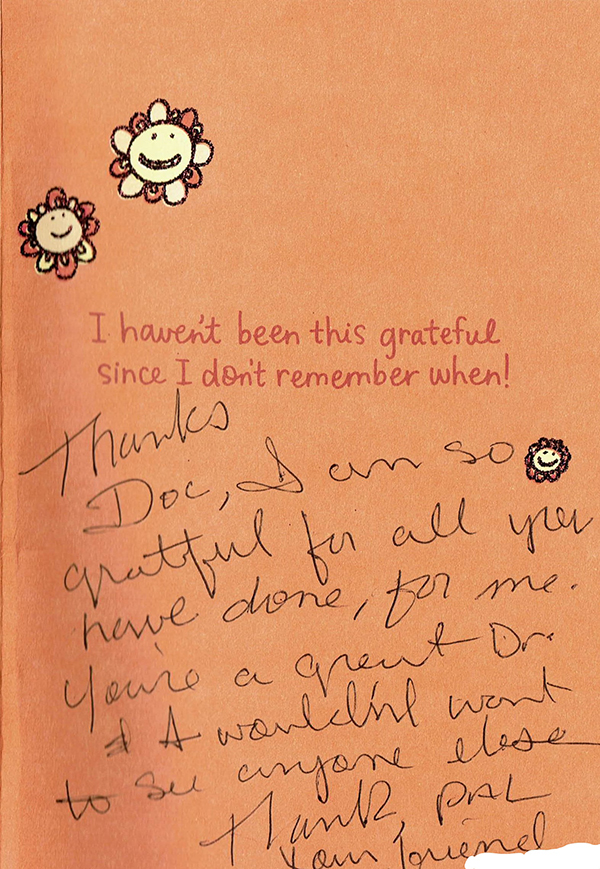 I haven't been this grateful
since I don't remember when!
Thanks
Doc, I am so
gratful for all you
have done, for me.
You're a great Dr.
& I wouldn't want
to see anyone else
Thank, PAL
Your friend